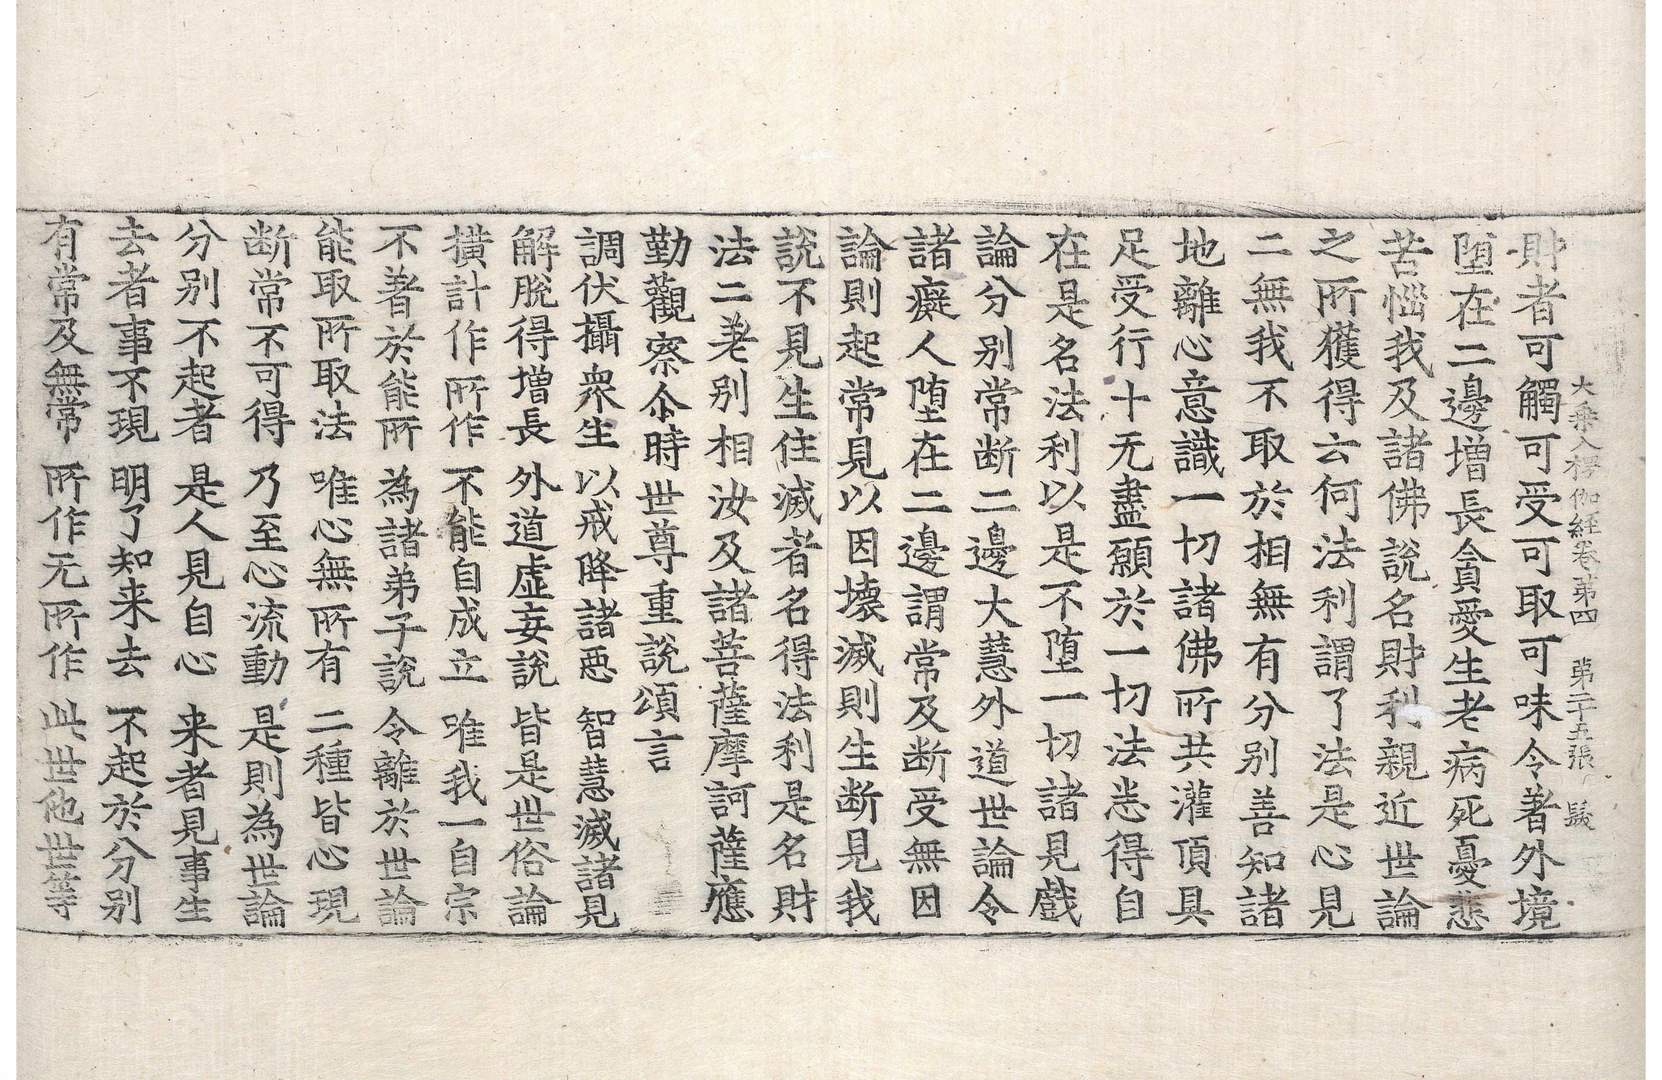 大乘入楞伽經卷第四　第二十五張
財者可觸可受可取可味令著外境
墮在二邊增長貪愛生老病死憂悲
苦惱我及諸佛說名財利親近世論
之所獲得云何法利謂了法是心見
二無我不取於相無有分別善知諸
地離心意識一切諸佛所共灌頂具
足受行十无盡願於一切法悉得自
在是名法利以是不墮一切諸見戲
論分別常断二邊大慧外道世論令
諸癡人墮在二邊謂常及断受無因
論則起常見以因壞滅則生断見我
說不見生住滅者名得法利是名財
法二差別相汝及諸菩薩摩訶薩應
勤觀察尒時世尊重說頌言
調伏攝衆生　以戒降諸惡　智慧滅諸見
解脫得增長　外道虛妄說　皆是世俗論
橫計作所作　不能自成立　唯我一自宗
不著於能所　為諸弟子說　令離於世論
能取所取法　唯心無所有　二種皆心現
断常不可得　乃至心流動　是則為世論
分別不起者　是人見自心　来者見事生
去者事不現　明了知来去　不起於分別
有常及無常　所作无所作　此世他世等